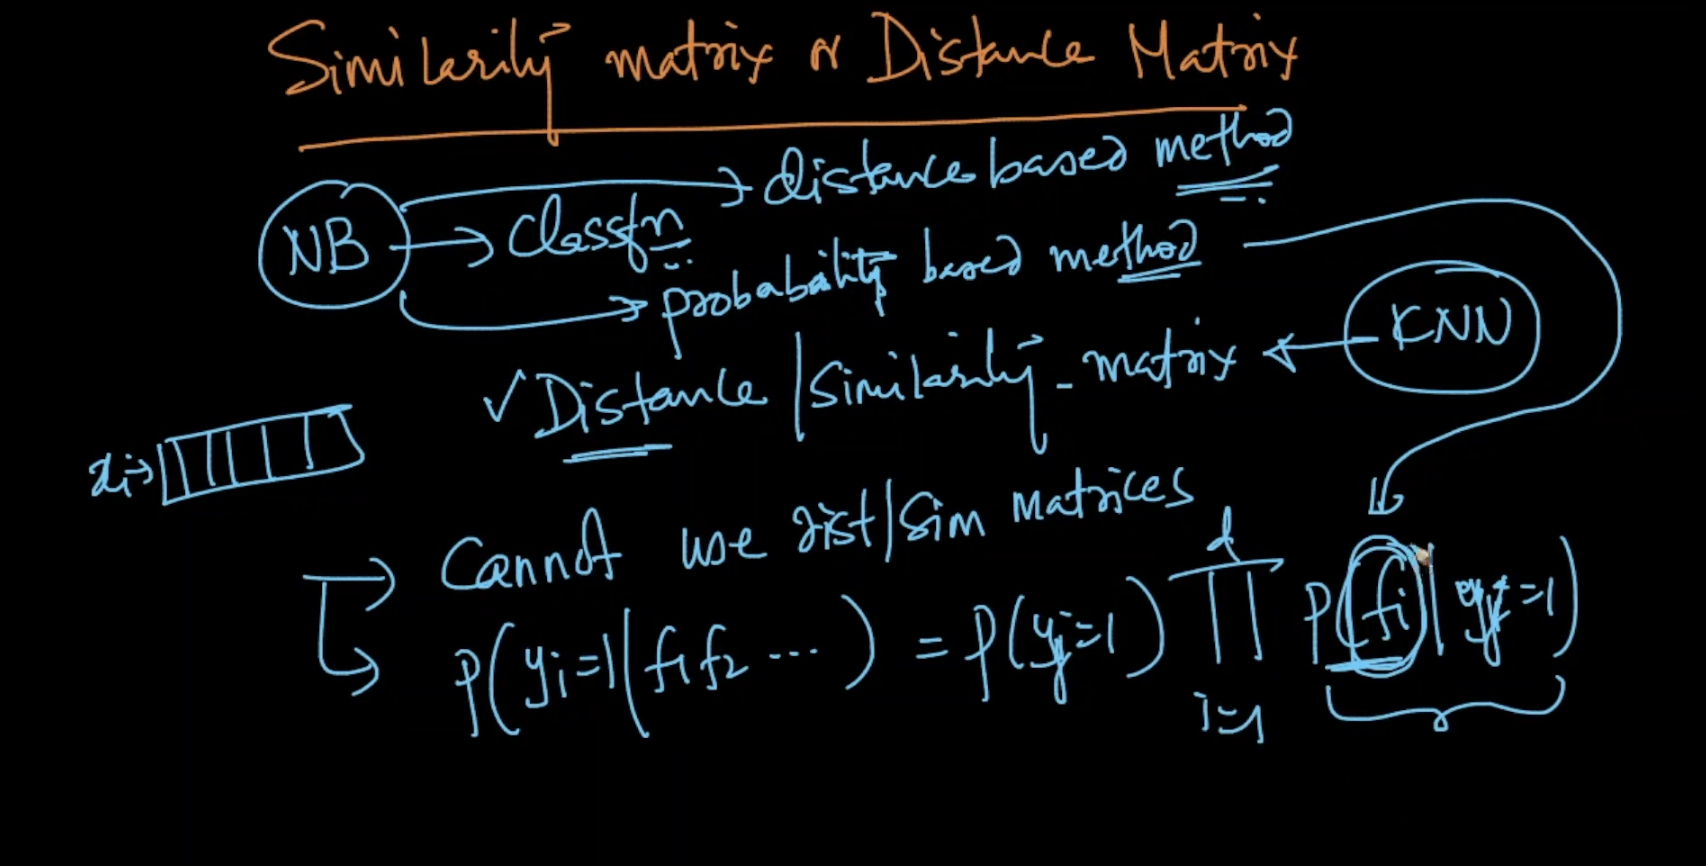 Similarity matrix or Distance Matrix
NB → Classfn → distance based method
→ probability based method
✓ Distance / Similarity - matrix ← KNN
xi →
→ Cannot use dist/sim matrices
P(yi=1|f1 f2 ...) = P(yi=1) ∏ d i=1 P(fi|yi=1)